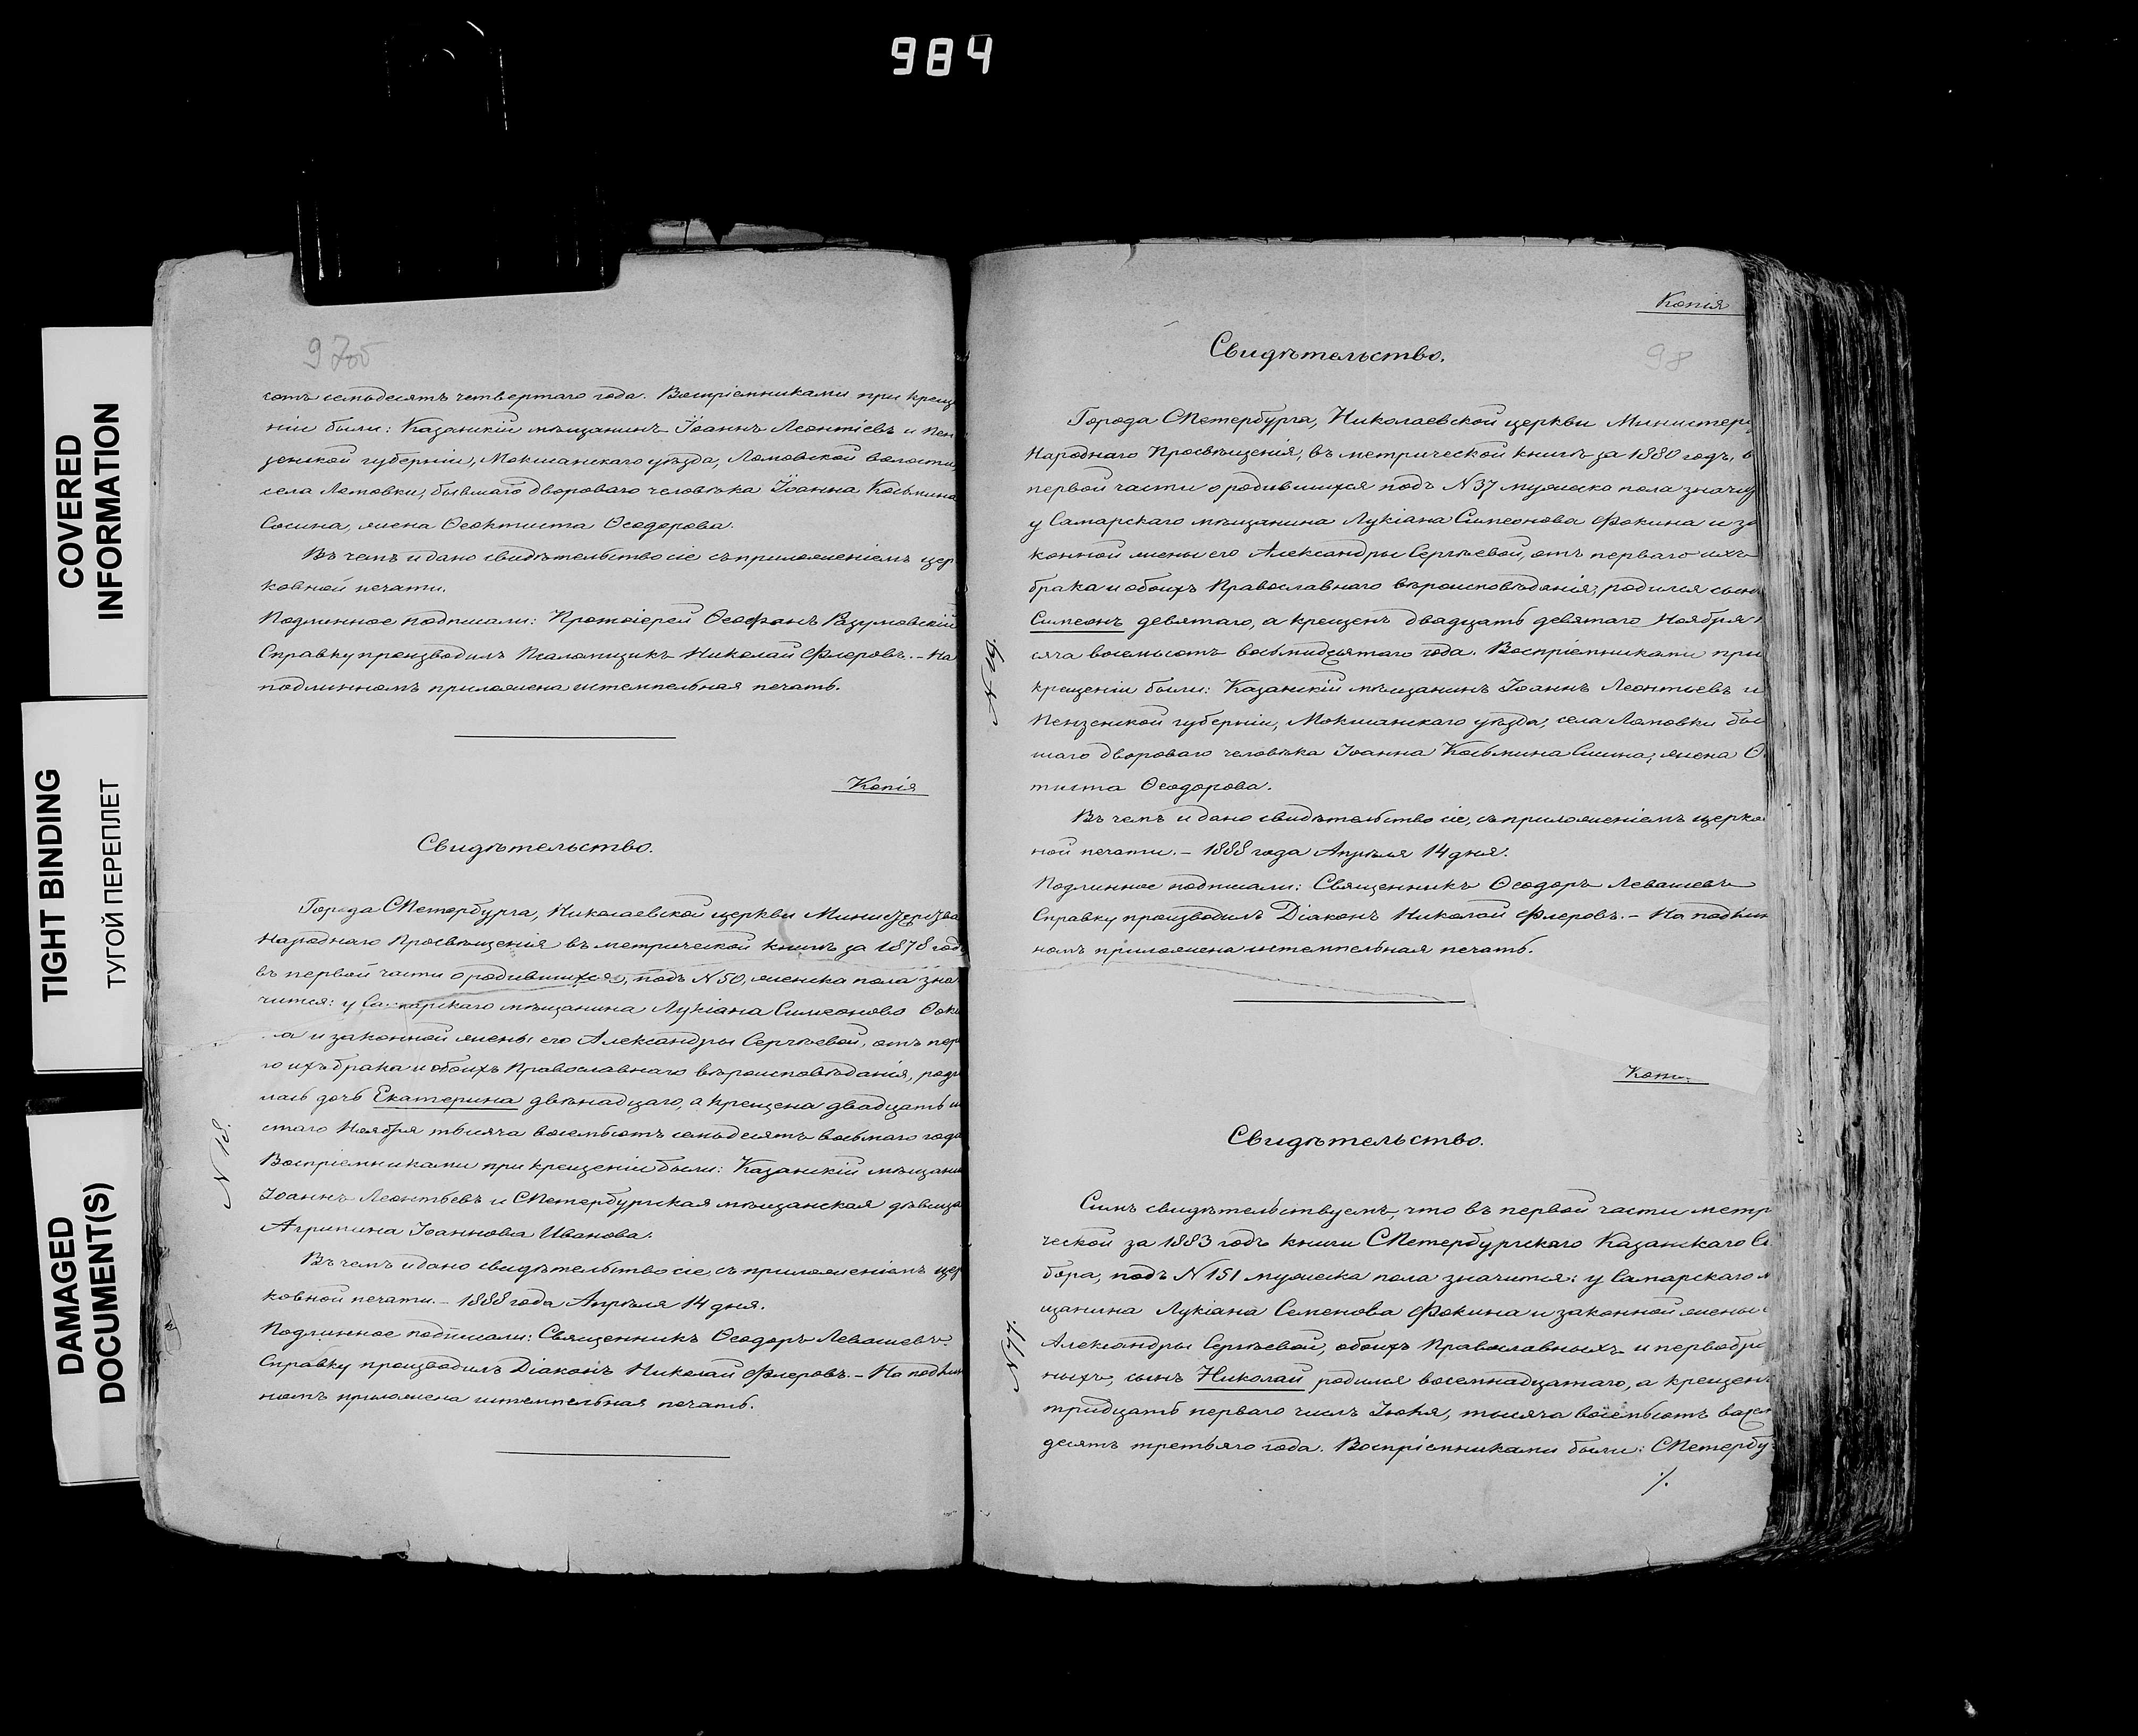 984
COVERED
INFORMATION
TIGHT BINDING
ТУГОЙ ПЕРЕПЛЕТ
DAMAGED
DOCUMENT(S)
97об
сотъ семьдесятъ четвертаго года. Воспріемниками при крещ
ніи были: Казанскій мѣщанинъ Іоаннъ Леонтіевъ и Пен
зенской губерніи, Мокшанскаго уѣзда, Ломовской волости,
села Ломовки, бывшаго двороваго человѣка Іоанна Косьмина
Сосина, жена Ѳеоктиста Ѳеодорова.
Въ чемъ и дано свидѣтельство сіе съ приложеніемъ цер
ковной печати.
Подлинное подписали: Протоіерей Ѳеофанъ Разумовскій
Справку производилъ Псаломщикъ Николай Флеровъ. - На
подлинномъ приложена штемпельная печать.
Копія
Свидѣтельство.
Города СПетербурга, Николаевской церкви Министерства
Народнаго Просвѣщенія въ метрической книгѣ за 1878 год
въ первой части о родившихся, подъ N 50, женска пола зна
чится: у Самарскаго мѣщанина Лукіана Симеонова Ѳоки
а и законной жены его Александры Сергѣевой, отъ пер
го ихъ брака и обоихъ Православнаго вѣроисповѣданія, роди
лась дочь Екатерина двѣнадцаго, а крещена двадцать ш
стаго Ноября тысяча восемьсотъ семьдесятъ восьмаго года
N 18.
Воспріемниками при крещеніи были: Казанскій мѣщани
Іоаннъ Леонтьевъ и СПетербургская мѣщанская дѣвица
Агрипина Іоаннова Иванова.
Въ чемъ и дано свидѣтельство сіе, съ приложеніемъ цер
ковной печати. - 1888 года Апрѣля 14 дня.
Подлинное подписали: Священникъ Ѳеодоръ Левашевъ.
Справку производилъ Діаконъ Николай Флеровъ. - На подлин
номъ приложена штемпельная печать.
Копія
98
Свидѣтельство.
Города СПетербурга, Николаевской церкви Министерс
Народнаго Просвѣщенія, въ метрической книгѣ за 1880 годъ, в
первой части о родившихся подъ N 37 мужеска пола значи
у Самарскаго мѣщанина Лукіана Симеонова Фокина и за
конной жены его Александры Сергѣевой, отъ перваго ихъ
брака и обоихъ Православнаго вѣроисповѣданія, родился сын
Симеонъ девятаго, а крещенъ двадцать девятаго Ноября
сяча восемьсотъ восьмидесятаго года. Воспріемниками при
N 19.
крещеніи были: Казанскій мѣщанинъ Іоаннъ Леонтьевъ и
Пензенской губерніи, Мокшанскаго уѣзда, села Ломовки быв
шаго двороваго человѣка Іоанна Косьмина жена Ѳ
тиста Ѳеодорова.
Въ чемъ и дано свидѣтельство сіе, съ приложеніемъ церков
ной печати. - 1888 года Апрѣля 14 дня.
Подлинное подписали: Священникъ Ѳеодоръ Левашевъ
Справку производилъ Діаконъ Николай Флеровъ. - На подлин
номъ приложена штемпельная печать.
Копі
Свидѣтельство.
Симъ свидѣтельствуемъ, что въ первой части метр
ческой за 1883 годъ книги СПетербургскаго Казанскаго Со
бора, подъ N 151 мужеска пола значится: у Самарскаго м
щанина Лукіана Семенова Фокина и законной жены
Александры Сергѣевой, обоихъ Православныхъ и первобра
ныхъ, сынъ Николай родился восемнадцатаго, а крещен
тридцать перваго числъ Іюля, тысяча восемьсотъ восем
десятъ третьяго года. Воспріемниками были: СПетербу
./.